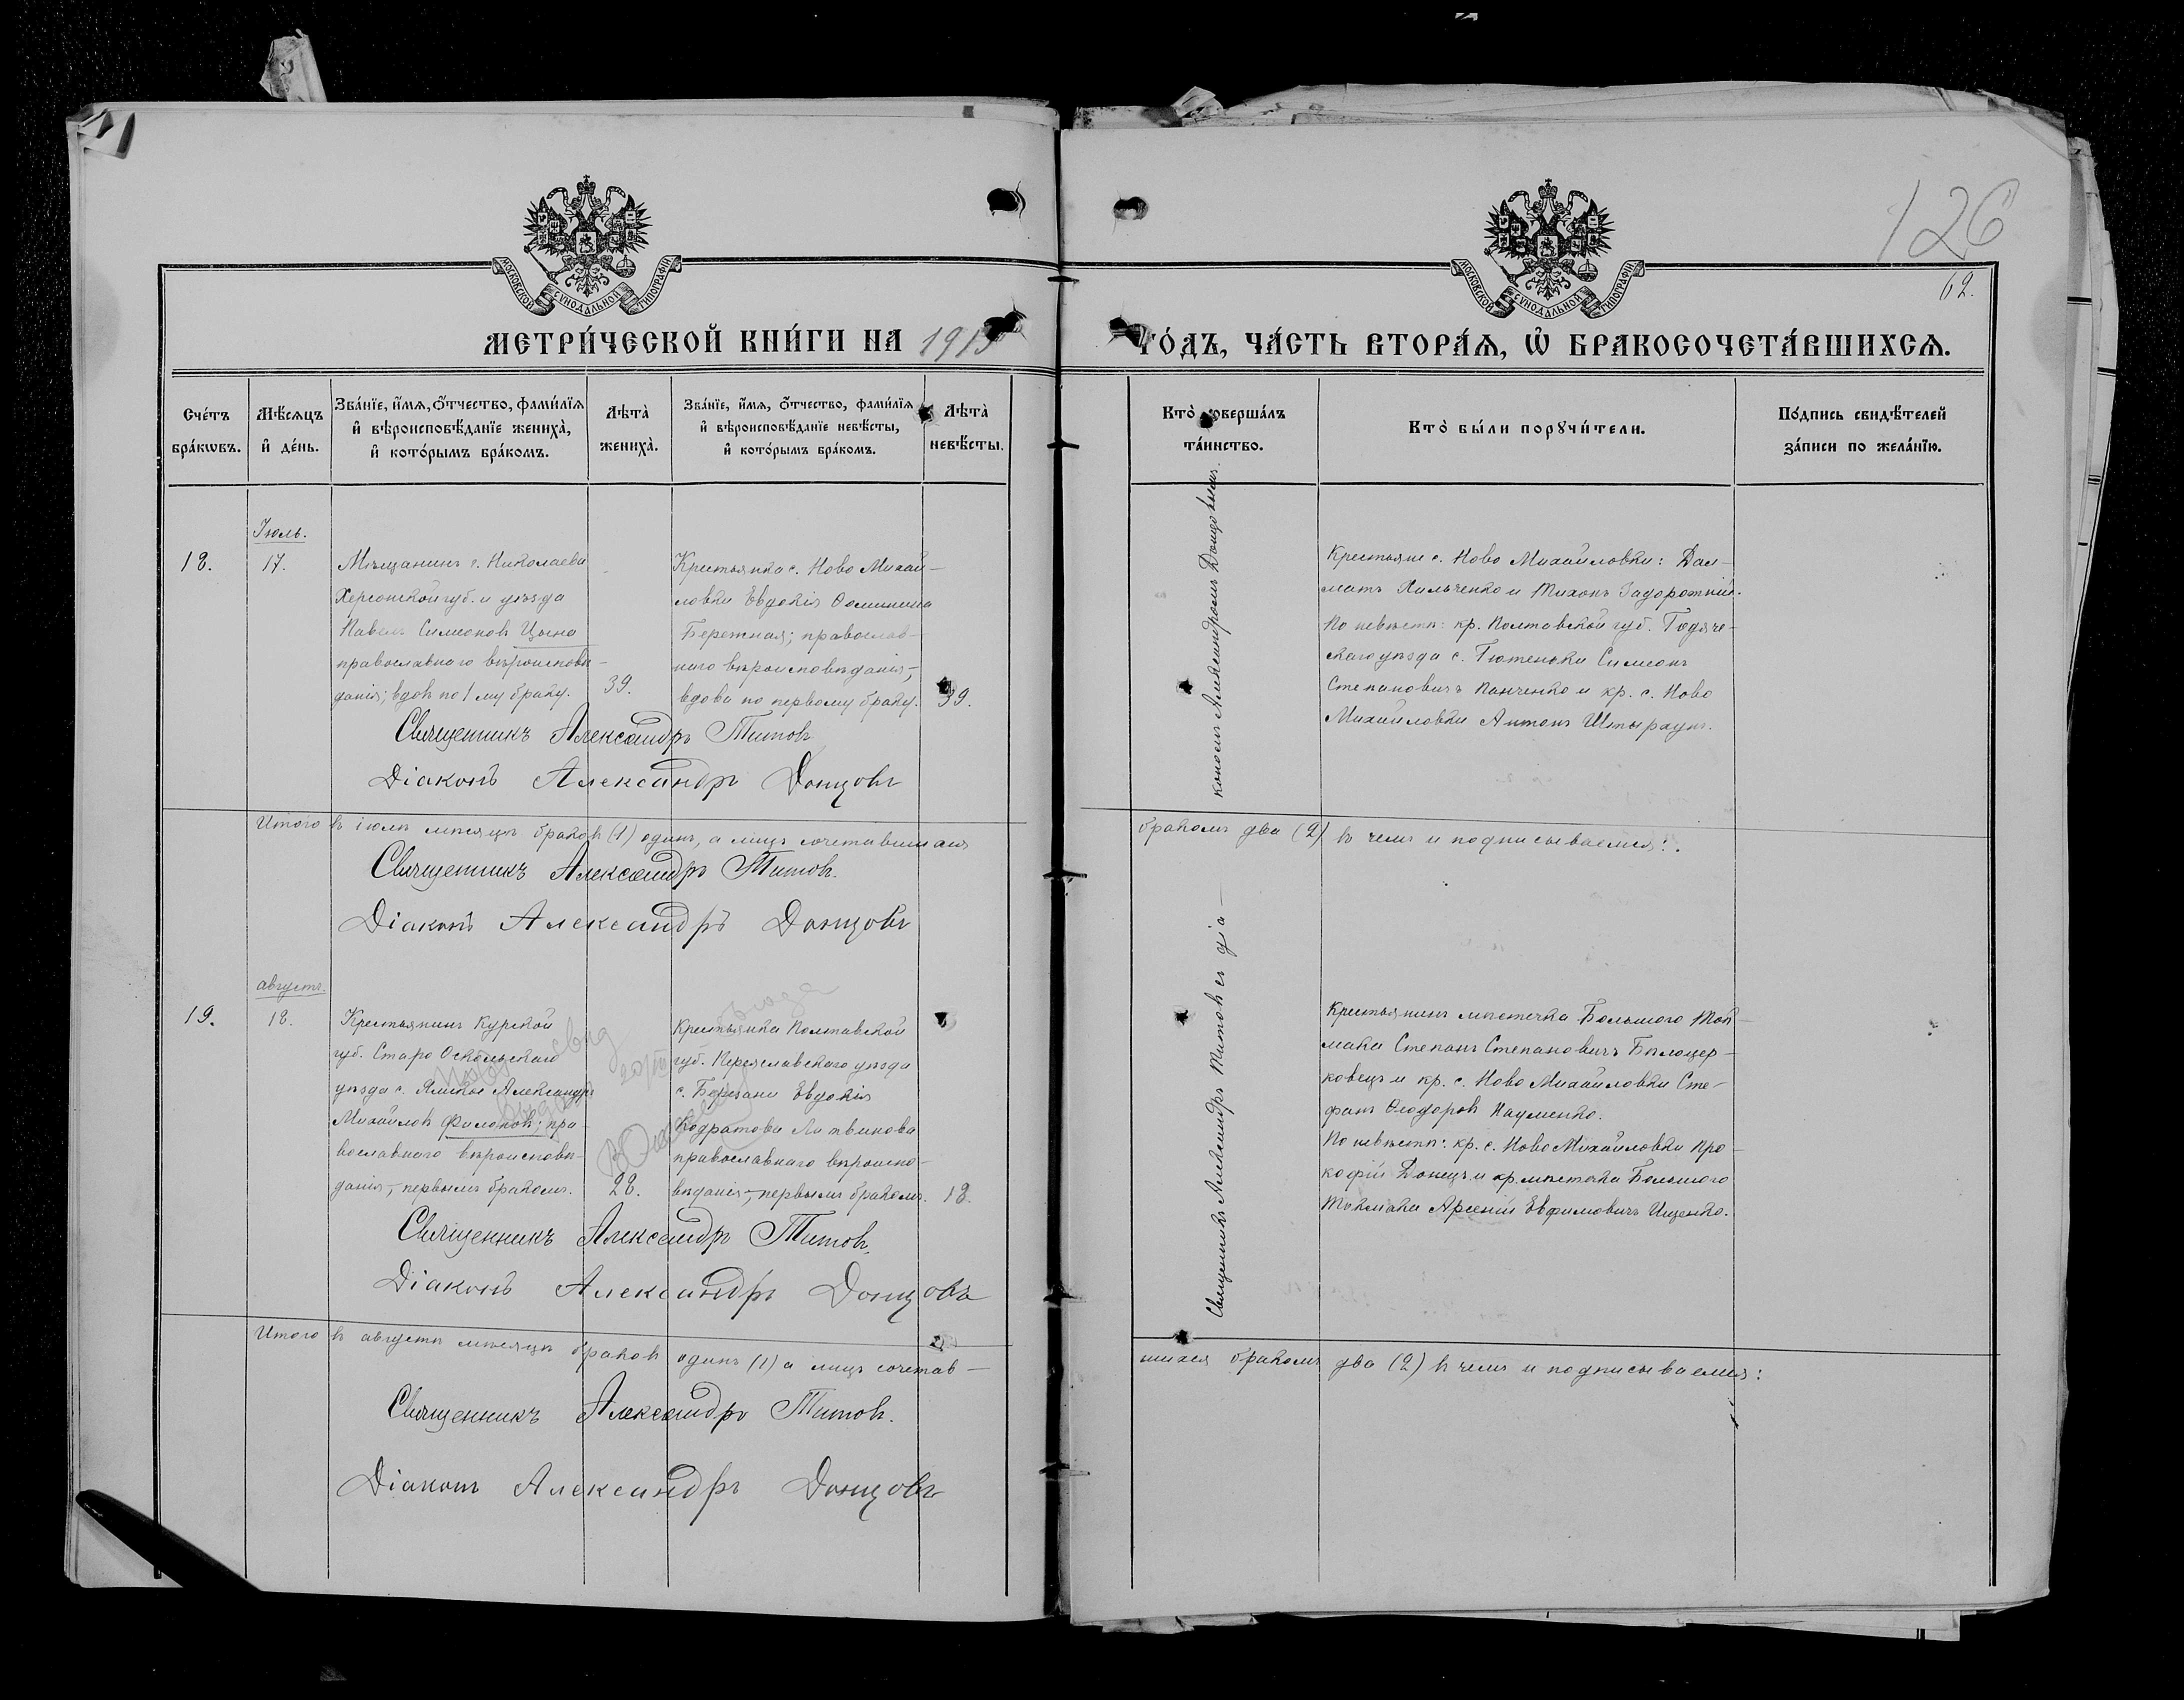 126
62.
МОСКОВСКОЙ СѴНОДАЛЬНОЙ ТИПОГРАФІИ
МОСКОВСКОЙ СѴНОДАЛЬНОЙ ТИПОГРАФІИ
МЕТРИ́ЧЕСКОЙ КНИ́ГИ НА 1915 ГО́ДЪ, ЧА́СТЬ ВТОРА́Ѧ, Ѽ БРАКОСОЧЕТА́ВШИХСѦ.
Сче́тъ бра́кѡвъ.
Мѣ́сѧцъ и҆ де́нь.
Зва́нїе, и҆́мѧ, ѻ҆́тчество, фами́лїѧ и҆ вѣроисповѣ́данїе жениха̀, и҆ кото́рымъ бра́комъ.
Лѣта̀ жениха̀.
Зва́нїе, и҆́мѧ, ѻ҆́тчество, фами́лїѧ и҆ вѣроисповѣ́данїе невѣ́сты, и҆ кото́рымъ бра́комъ.
Лѣта̀ невѣ́сты.
Кто̀ соверша́лъ та́инство.
Кто̀ бы́ли порꙋчи́тели.
По́дпись свидѣ́телей за́писи по жела́нїю.
Іюль.
18. 17.
Мѣщанинъ г. Николаева
Херсонской губ. и уѣзда
Павелъ Симеоновъ Цына
православнаго вѣроисповѣ-
данія; вдовъ по 1му браку.
39.
Крестьянка с. Ново Михай-
ловки Евдокія Ѳомишна
Бережная; православ-
наго вѣроисповѣданія,-
вдова по первому браку.
39.
Крестьяне с. Ново Михайловки: Дал-
матъ Хильченко и Тихонъ Задорожній.
По невѣстѣ: кр. Полтавской губ. Гадяче-
скаго уѣзда с. Тютеньки Симеонъ
Степановичъ Панченко и кр. с. Ново
Михайловки Антонъ Штырхунъ.
Священникъ Александръ Титовъ
Діаконъ Александръ Донцовъ
Итого въ іюлѣ мѣсяцѣ браковъ (1) одинъ, а лицъ сочетавшихся бракомъ два (2) въ чемъ и подписываемся:
Священникъ Александръ Титовъ.
Діаконъ Александръ Донцовъ
Священникъ Александръ Титовъ съ діа-
кономъ Александромъ Донцовымъ.
августъ.
19. 18.
Крестьянинъ Курской
губ. Старо Оскольскаго
уѣзда с. Ямское Александръ
Михайловъ Филоновъ; пра-
вославнаго вѣроисповѣ-
данія,- первымъ бракомъ.
28.
Крестьянка Полтавской
губ. Переяславскаго уѣзда
с. Березани Евдокія
Кодратова Литвинова
православнаго вѣроиспо-
вѣданія,- первымъ бракомъ.
18.
Крестьянинъ мѣстечка Большого Ток-
мака Степанъ Степановичъ Бѣлоцер-
ковецъ и кр. с. Ново Михайловки Сте-
фанъ Ѳеодоровъ Науменко.
По невѣстѣ: кр. с. Ново Михайловки Про-
кофій Донецъ и кр. мѣстечка Большого
Токмака Арсеній Евфимовичъ Ищенко.
Священникъ Александръ Титовъ.
Діаконъ Александръ Донцовъ
Итого въ августѣ мѣсяцѣ браковъ одинъ (1) а лицъ сочетав-
шихся бракомъ два (2) въ чемъ и подписываемся:
Священникъ Александръ Титовъ.
Діаконъ Александръ Донцовъ